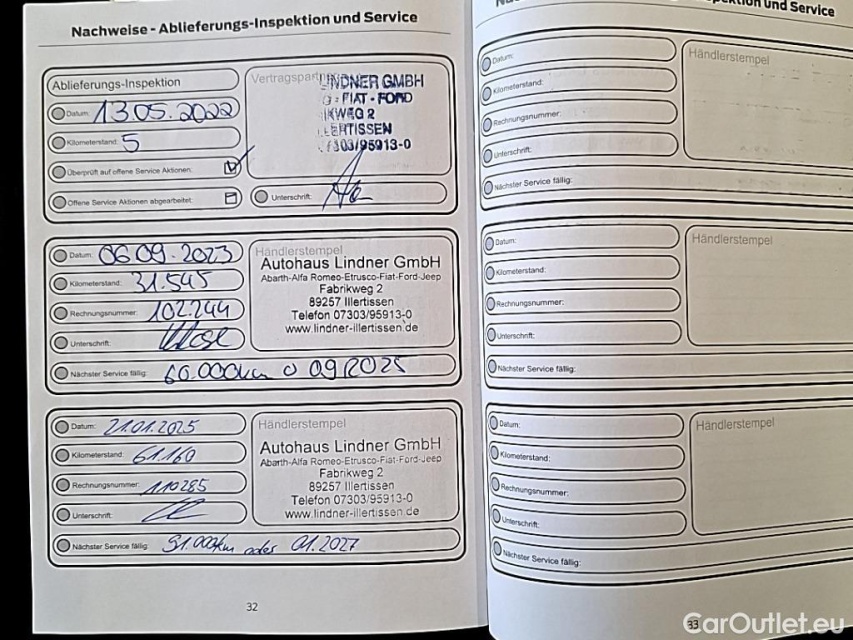 Nachweise - Ablieferungs-Inspektion und Service
Ablieferungs-Inspektion
Datum: 13.05.2022
Kilometerstand: 5
Überprüft auf offene Service Aktionen:
Offene Service Aktionen abgearbeitet:
Vertragspartn
LINDNER GMBH
FIAT - FORD
IKWEG 2
LERTISSEN
7303/95913-0
Unterschrift:
Datum: 06.09.2023
Kilometerstand: 31.545
Rechnungsnummer: 102.244
Unterschrift:
Händlerstempel
Autohaus Lindner GmbH
Abarth-Alfa Romeo-Etrusco-Fiat-Ford-Jeep
Fabrikweg 2
89257 Illertissen
Telefon 07303/95913-0
www.lindner-illertissen.de
Nächster Service fällig: 60.000km o 09/2025
Datum: 21.01.2025
Kilometerstand: 61.160
Rechnungsnummer: 110285
Unterschrift:
Händlerstempel
Autohaus Lindner GmbH
Abarth-Alfa Romeo-Etrusco-Fiat-Ford-Jeep
Fabrikweg 2
89257 Illertissen
Telefon 07303/95913-0
www.lindner-illertissen.de
Nächster Service fällig: 91.000km oder 01.2027
32
spektion und Service
Datum:
Kilometerstand:
Rechnungsnummer:
Unterschrift:
Händlerstempel
Nächster Service fällig:
Datum:
Kilometerstand:
Rechnungsnummer:
Unterschrift:
Händlerstempel
Nächster Service fällig:
Datum:
Kilometerstand:
Rechnungsnummer:
Unterschrift:
Händlerstempel
Nächster Service fällig:
33
CarOutlet.eu